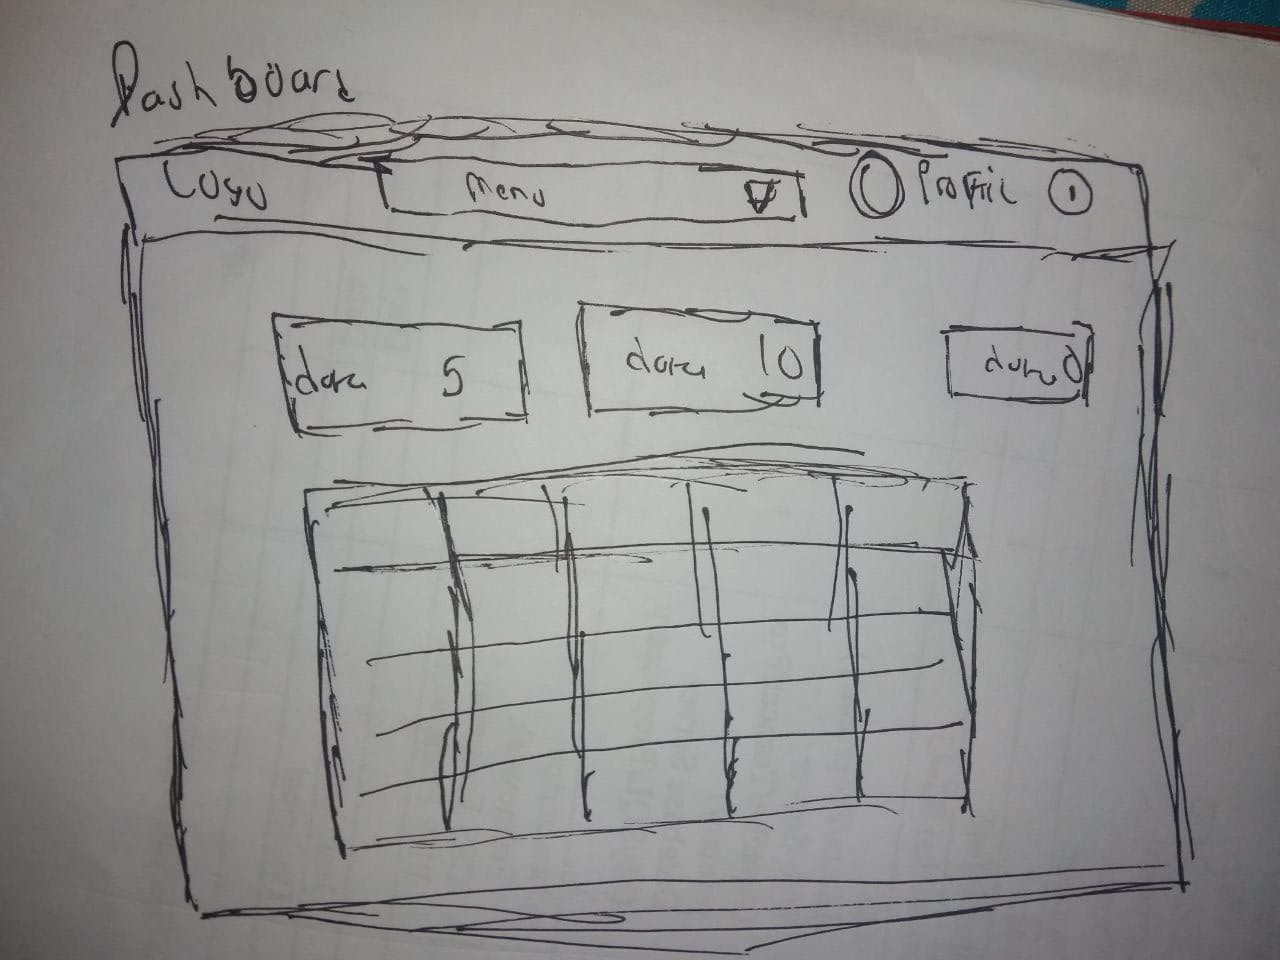 Dashboard
Logo Menu Profil
data 5 data 10 data 0